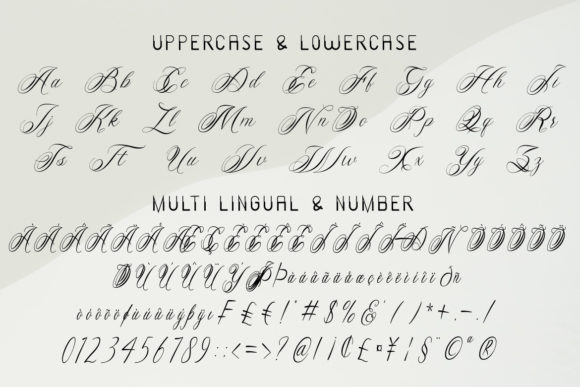 UPPERCASE & LOWERCASE
Aa Bb Cc Dd Ee Ff Gg Hh Ii
Jj Kk Ll Mm Nn Oo Pp Qq Rr
Ss Tt Uu Vv Ww Xx Yy Zz
MULTI LINGUAL & NUMBER
ÀÁÂÃÄÅÆÇÈÉÊËÌÍÎÏÐÑÒÓÔÕÖ
ØÙÚÛÜÝÞßàáâãäåæçèéêëìíîïðñ
òóôõöøùúûüýþÿı₣£€!"#$%&'()*+.-./
0123456789::<=>?@/¡¢£¤¥¦§¨©ª®